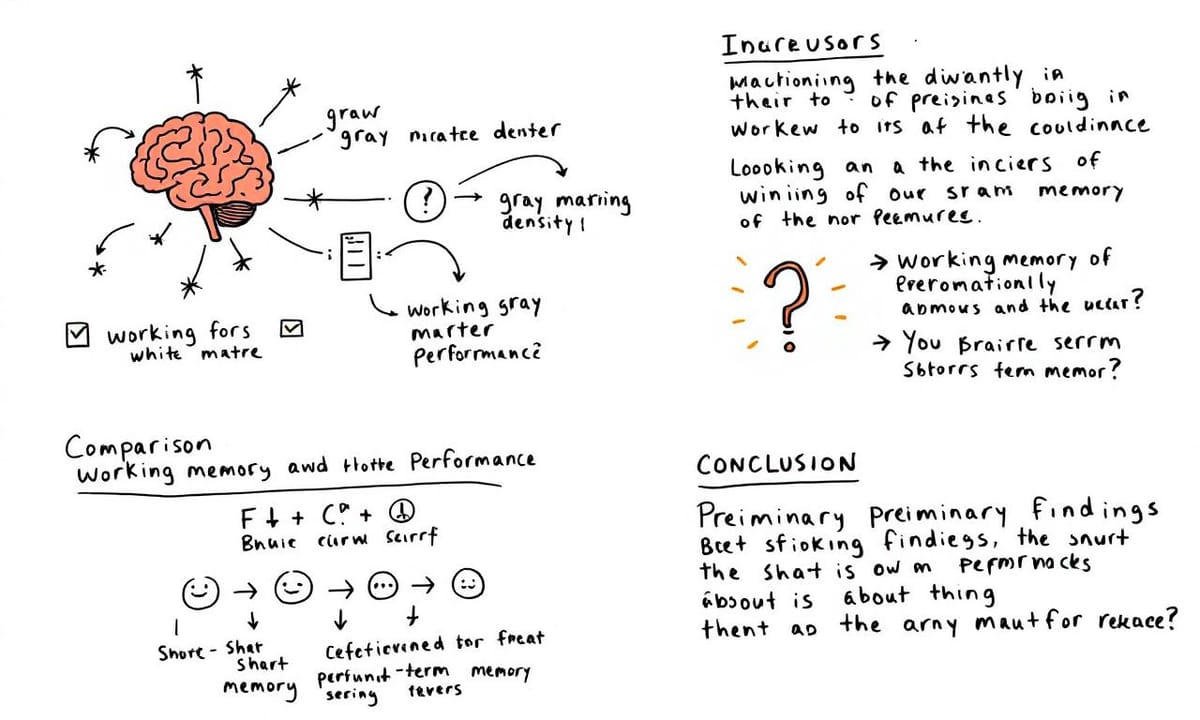 graw
gray nicatce denter
gray mariing
density!
working gray
marter
performmance
working fors
white matre
Inareusors
Mactioniing the diwantly in
their to of preisinas boiig in
workew to its af the couldinnce
Loooking an a the inciers of
winiing of our sram memory
of the nor Peemuree.
?
→ Working memory of
Preromationlly
abmous and the uctar?
→ You Brairre serrm
Sbtorrs tern memor?
Comparison
Working memory awd Hotte Performance
F ↓ + C? +
Bnuie curw seirrf
Shore - Shar
Shart
memory
Cefeticvened tor freat
perfunit-term memory
sering tevers
CONCLUSION
Preiminary preiminary findings
Bcet sfioking findiegs, the snurt
the shat is ow m pepmrnacks
ábsout is ábout thing
thent ao the arny mautfor rekace?